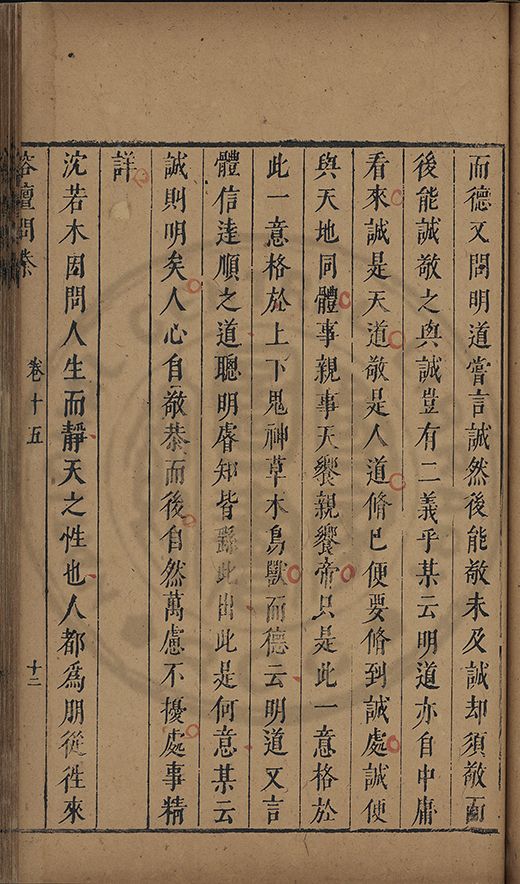 而德又問明道嘗言誠然後能敬未及誠却須敬而
後能誠敬之與誠豈有二義乎某云明道亦自中庸
看來誠是天道敬是人道脩已便要脩到誠處誠便
與天地同體事親事天饗親饗帝只是此一意格於
此一意格於上下鬼神草木鳥獸而德云明道又言
體信逹順之道聰明睿知皆繇此出此是何意某云
誠則明矣人心自敬恭而後自然萬慮不擾處事精
詳
沈若木因問人生而靜天之性也人都爲朋從徃來
榕壇問業
卷十五
十二